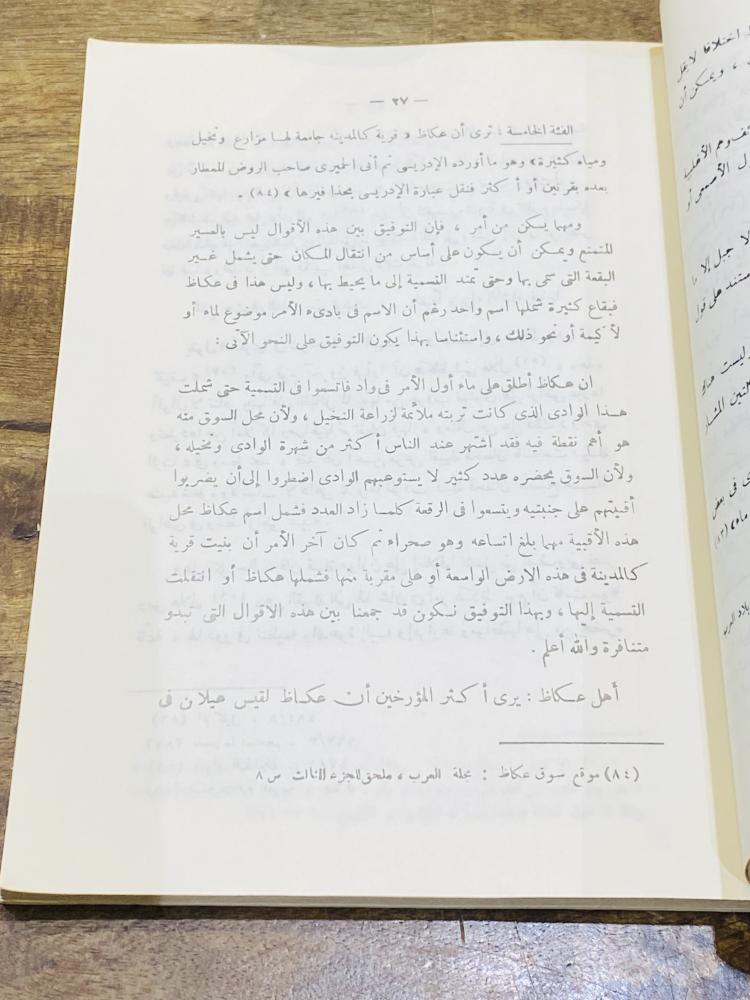 — ٢٧ —
الفئة الخامسة : ترى أن عكاظ « قرية كالمدينة جامعة لها مزارع ونخيل
ومياه كثيرة» وهو ما أورده الإدريسى ثم أتى الحميرى صاحب الروض المعطار
بعده بقرنين أو أكثر فنقل عبارة الإدريسى بحذافيرها » (٨٤) .
ومهما يكن من أمر ، فإن التوفيق بين هذه الأقوال ليس بالعسير
الممتنع ويمكن أن يكون على أساس من انتقال المكان حتى يشمل غير
البقعة التى سمى بها وحتى تمتد التسمية إلى ما يحيط بها ، وليس هذا فى عكاظ
فبقاع كثيرة شملها اسم واحد رغم أن الاسم فى بادىء الأمر موضوع لماء أو
لأكيمة أو نحو ذلك ، واستئناسا بهذا يكون التوفيق على النحو الآتى :
ان عكاظ أطلق على ماء أول الأمر فى واد فاتسموا فى التسمية حتى شملت
هذا الوادى الذى كانت تربته ملائمة لزراعة النخيل ، ولأن محل السوق منه
هو أهم نقطة فيه فقد اشتهر عند الناس أكثر من شهرة الوادى ونخيله ،
ولأن السوق يحضره عدد كثير لا يستوعبهم الوادى اضطروا إلى أن يضربوا
أقبيتهم على جنبتيه ويتسعوا فى الرقعة كلما زاد العدد فشمل اسم عكاظ محل
هذه الأقبية مهما بلغ اتساعه وهو صحراء ثم كان آخر الأمر أن بنيت قرية
كالمدينة فى هذه الارض الواسعة أو على مقربة منها فشملها عكاظ أو انتقلت
التسمية إليها ، وبهذا التوفيق نكون قد جمعنا بين هذه الاقوال التى تبدو
متنافرة والله أعلم .
أهل عكاظ : يرى أكثر المؤرخين أن عكاظ لقيس عيلان فى
(٨٤) موقع سوق عكاظ : مجلة العرب ، ملحق للجزء الثالث س ٨